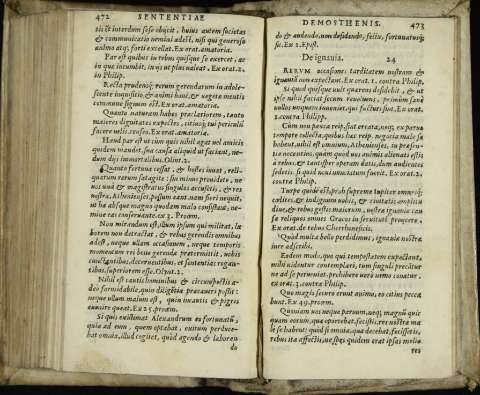 472 SENTENTIAE
tis & interdum sese obijcit, huius autem societas
& communicatio nemini adest, nisi qui generoso
animo atq; forti excellat. Ex orat. amatoria.
Par est quibus in rebus quisque se exercet, ac
in que incumbit, in ijs ut plus ualeat. Ex orat. 2.
in Philip.
Recta prudensq; rerum gerendarum in adole-
scente inquisitio, & animi haud uageta mentis
commune signum est. Ex orat. amatoria.
Quanto naturam habes praestatiorem, tanto
maiores dignitates expectes, citiusq; tui periculū
facere uelis, censeo. Ex orat. amatoria.
Haud par est ut cum quis nihil agat uel amicis
quidem suadet, sua causa aliquid ut faciant, ne-
dum dijs immortalibus. Olint. 2.
Quanto fortuna cessat, & hostes iuuat, reli-
quarum rerum satagite: sin minus prouidete, ne
nos una & magistratus singulos accusetis, & res
nostrae, Athenienses, possum eant. nam fieri nequit,
ut ha absque magno quodam malo constitutae, ne-
mine eas conseruante. ex 3. Proœm.
Non mirandum est, illum ipsum qui militat, la-
borem non detrectat, & rebus gerendis omnibus
adest, neque ullam occasionem, neque temporis
momentum rei bene gerenda praetermittit, uobis
cunctantibus, decernentibus, et sententias rogan-
tibus, superiorem esse. Olynt. 2.
Nihil est cautis hominibus & circunspectis a-
deo formidabile, quin diligētia praecaueri possit:
neque ullum malum est, quin incautis & pigris
euenire queat. Ex 25. proœm.
Si quis existimat Alexandrum eo fortunatū,
quia ad eum, quem optabat, exitum perduce-
bat omnia, illud cogitet, quod agendo & laboran
do
DEMOSTHENIS. 473
do & audendo, non desidendo, felix, fortunatusq;
sit. Ex 1. Epist.
De ignauia. 24
RERVM occasiones tarditatem nostram &
ignauiā non expectant. Ex orat. 1. contra Philip.
Si quod quisque uult quaerens desidebit, & ut
ipse nihil faciat secum reuoluens, primùm sanè
nullos unquam inueniet, qui factus sint. Ex orat.
2. contra Philipp.
Cùm neq; pauca reip. sint errata, neq; ex paruo
tempore collecta, quibus has reip. negocia male se
habeant, nihil est omnium, Athenienses, in praesen-
tia nocentius, quàm quod uos animis alienati estis
à rebus, & tantisper operam datis, dum audientes
sedetis, si quid noui nunciatum fuerit. Ex orat. 2.
contra Philip.
Turpe quidē est, proh supreme Iupiter omniūq;
coelites & indignum uobis, & ciuitatis amplitu
dine, & rebus gestis maiorum, uestra ignauia cau
sa reliquos omneis Graecos in seruitutē projcere.
Ex orat. de rebus Cherrhonesicis.
Quòd multa bello perdidimus, ignauiae nostrae
iure adscribi.
Eodem modo, quo qui tempestatem expectant,
mihi uidentur contemplari, tum singuli precātur
ne ad se perueniat, prohibere uerò nemo conatur.
ex orat. 3. contra Philip.
Quo magis securo erunt animo, eo citius pecca
bunt. Ex 49. proœm.
Quoniam uos neque paruum, neq; magnū quic
quam eorum, quae oportebat, fecistis, res uestrae ma
le se habent: quòd si omnia, quae decebat, fecissetis,
rebus ita affectis, ne spes quidem erat ipsas melio
res